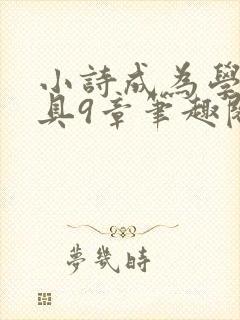 小詩成為學
具9章筆趣閱
夢幾時